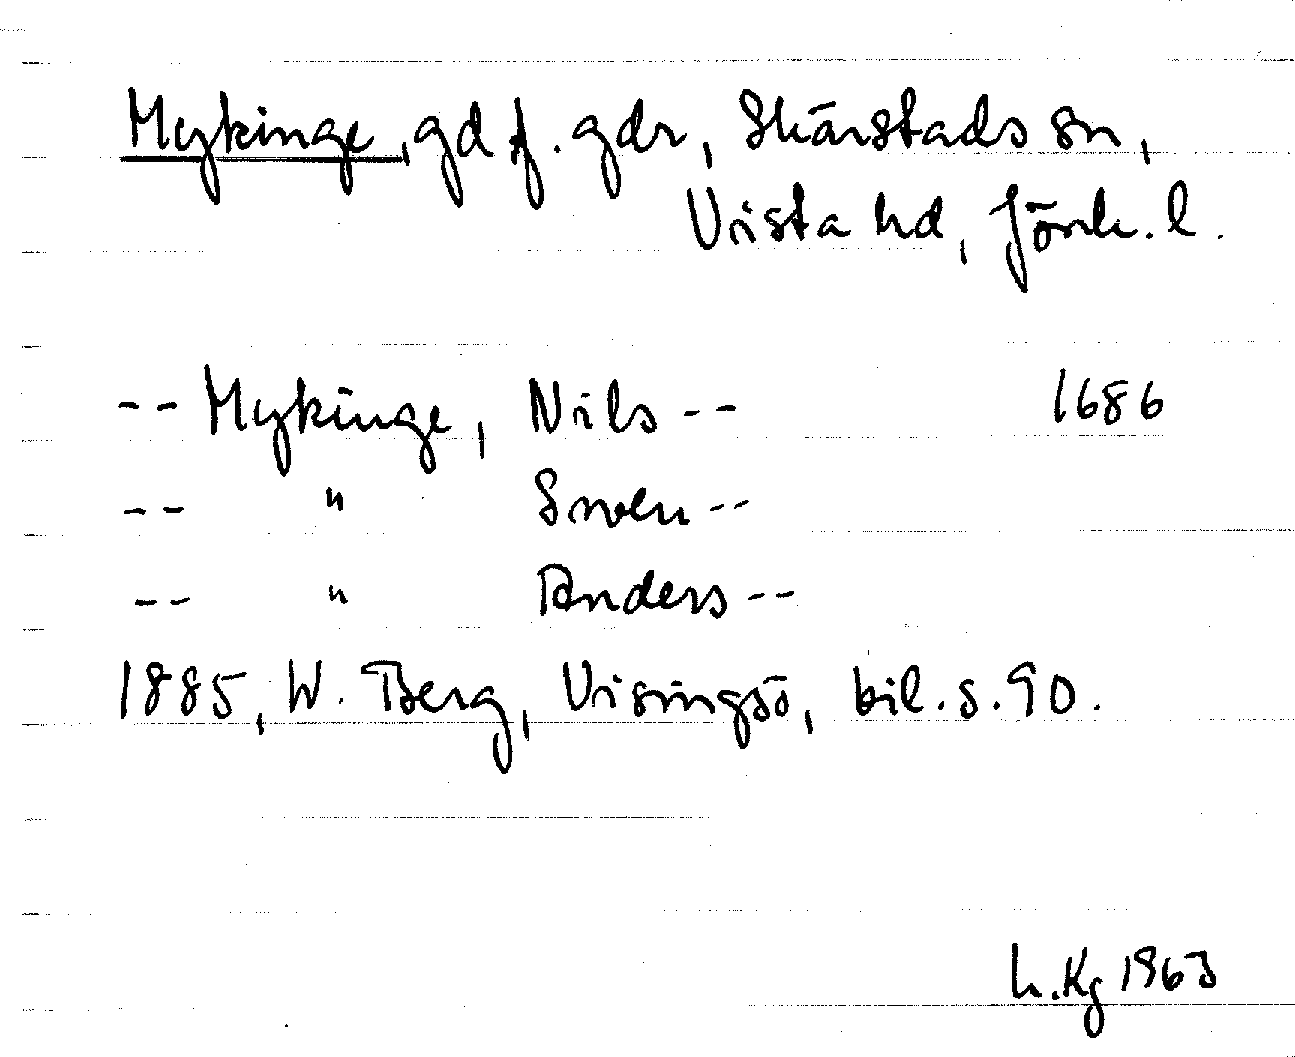 Mykinge, gd f. gdr, Skärstads sn,
Vista hd, Jönk. l.
-- Mykinge, Nils -- 1686
-- " Swen --
-- " Anders --
1885, W. Berg, Visingsö, bil. s. 90.
h. Kg 1963